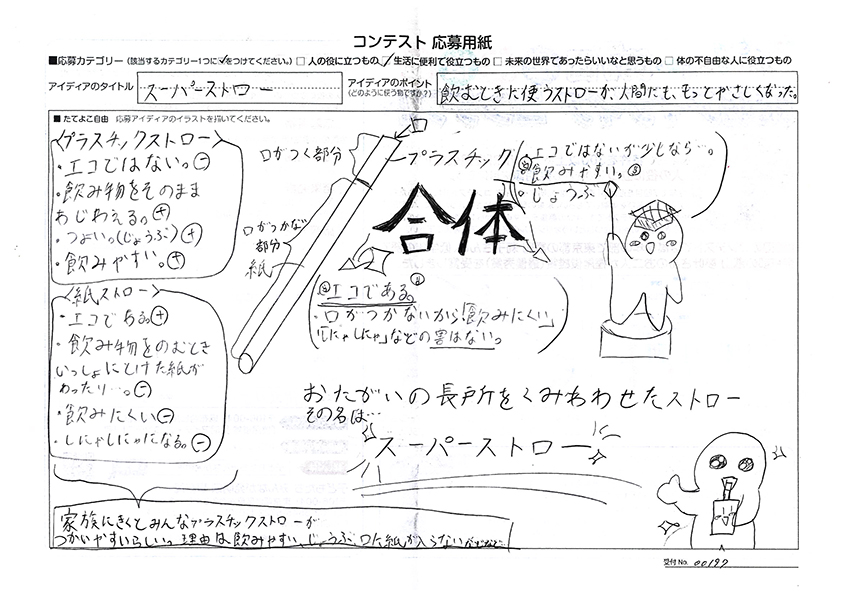 コンテスト 応募用紙
■応募カテゴリー（該当するカテゴリー1つに✓をつけてください。）□ 人の役に立つもの ☑ 生活に便利で役立つもの □ 未来の世界であったらいいなと思うもの □ 体の不自由な人に役立つもの
アイディアのタイトル
スーパーストロー
アイディアのポイント
（どのように使う物ですか？）
飲むときに使うストローが、人間にも、もっとやさしくなった。
■ たてよこ自由 応募アイディアのイラストを描いてください。
〈プラスチックストロー〉
・エコではない。⊖
・飲み物をそのまま
あじわえる。⊕
・つよい。(じょうぶ)⊕
・飲みやすい。⊕
〈紙ストロー〉
・エコである⊕
・飲み物をのむとき
いっしょにとけた紙が
わったり…。⊖
・飲みにくい⊖
・しにゃしにゃになる。⊖
口がつく部分
プラスチック
口がつかない
部分
紙
エコではないが少しなら…。
飲みやすい。
じょうぶ
合体
エコである。
・口がつかないから「飲みにくい」
「しにゃしにゃ」などの害はない。
おたがいの長所をくみあわせたストロー
その名は…
スーパーストロー
家族にきくとみんなプラスチックストローが
つかいやすいらしい。理由は飲みやすい、じょうぶ、口に紙が入らないなど
受付No. 00197